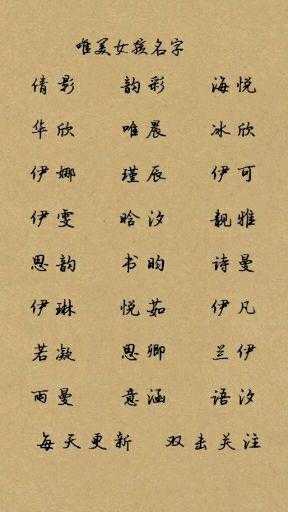 唯美女孩名字
倩影 韵彩 海悦
华欣 唯晨 冰欣
伊娜 瑾辰 伊可
伊雯 晗汐 靓雅
思韵 书昀 诗曼
伊琳 悦茹 伊凡
若凝 思卿 兰伊
雨曼 意涵 语汐
每天更新 双击关注